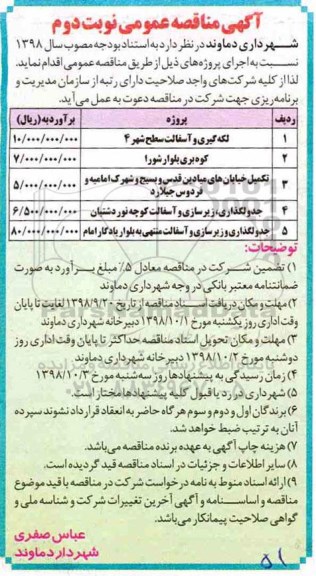 آگهی مناقصه عمومی نوبت دوم
شهرداری دماوند در نظر دارد به استناد بودجه مصوب سال ۱۳۹۸
نسبت به اجرای پروژه‌های ذیل از طریق مناقصه عمومی اقدام نماید.
لذا از کلیه شرکت‌های واجد صلاحیت دارای رتبه از سازمان مدیریت و
برنامه‌ریزی جهت شرکت در مناقصه دعوت به عمل می‌آید.
ردیف پروژه برآورد به (ریال)
۱ لکه‌گیری و آسفالت سطح شهر ۴ ۱۰/۰۰۰/۰۰۰/۰۰۰
۲ کوه‌بری بلوار شورا ۷/۰۰۰/۰۰۰/۰۰۰
۳ تکمیل خیابان‌های میادین قدس و بسیج و شهرک امامیه و
فردوس جیلارد ۵/۰۰۰/۰۰۰/۰۰۰
۴ جدولگذاری، زیرسازی و آسفالت کوچه نور دشتبان ۶/۵۰۰/۰۰۰/۰۰۰
۵ جدولگذاری و زیرسازی و آسفالت منتهی به بلوار یادگار امام ۸۰/۰۰۰/۰۰۰/۰۰۰
توضیحات:
۱) تضمین شرکت در مناقصه معادل ۵٪ مبلغ برآورد به صورت
ضمانتنامه معتبر بانکی در وجه شهرداری دماوند
۲) مهلت و مکان دریافت اسناد مناقصه از تاریخ ۱۳۹۸/۹/۲۰ لغایت تا پایان
وقت اداری روز یکشنبه مورخ ۱۳۹۸/۱۰/۱ دبیرخانه شهرداری دماوند
۳) مهلت و مکان تحویل اسناد مناقصه حداکثر تا پایان وقت اداری روز
دوشنبه مورخ ۱۳۹۸/۱۰/۲ دبیرخانه شهرداری دماوند
۴) زمان رسیدگی به پیشنهادها روز سه‌شنبه مورخ ۱۳۹۸/۱۰/۳
۵) شهرداری در رد یا قبول کلیه پیشنهادها مختار است.
۶) برندگان اول و دوم و سوم هرگاه حاضر به انعقاد قرارداد نشوند سپرده
آنان به ترتیب ضبط خواهد شد.
۷) هزینه چاپ آگهی به عهده برنده مناقصه می‌باشد.
۸) سایر اطلاعات و جزئیات در اسناد مناقصه قید گردیده است.
۹) ارائه اسناد منوط به نامه درخواست شرکت در مناقصه با قید موضوع
مناقصه و اساسنامه و آگهی آخرین تغییرات شرکت و شناسه ملی و
گواهی صلاحیت پیمانکار می‌باشد.
عباس صفری
شهردار دماوند